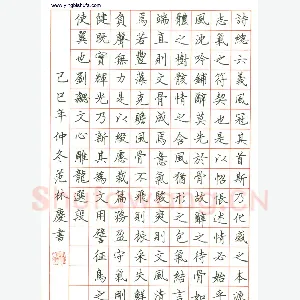 www.yingbishufa.com
詩總六義風冠其首斯乃化感之本源
志氣之符契也是以怊悵述情必始乎
風沈吟鋪辭莫先於骨故辭之待骨如
體之樹骸情之含風猶形之包氣結言
端直則文骨成焉意氣駿爽則文風生
焉若豐藻克贍風骨不飛則振采失鮮
負聲無力是以綴慮裁篇務盈守氣剛
健既實輝光乃新其為文用譬征鳥之
使翼也劉勰文心雕龍選段
己巳年仲冬范林慶書